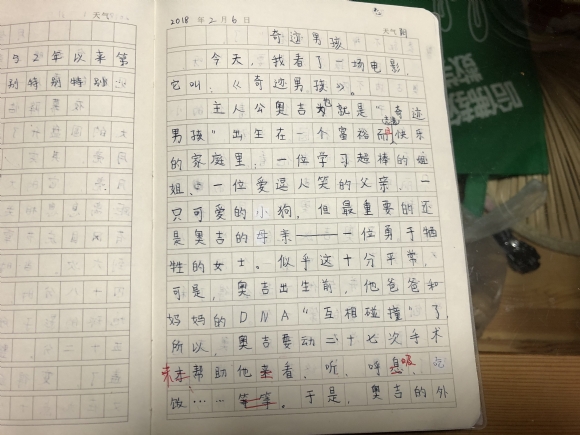 天气
2018年2月6日
天气阴
奇迹男孩
今天，我看了一场电影，
它叫：《奇迹男孩》。
主人公奥吉也就是“奇迹
男孩”出生在一个富裕而快乐
的家庭里，一位学习超棒的姐
姐、一位爱逗人笑的父亲，一
只可爱的小狗，但最重要的还
是奥吉的母亲——一位勇于牺
牲的女士。似乎这十分平常，
可是，奥吉出生前，他爸爸和
妈妈的DNA“互相碰撞”了，
所以，奥吉要动二十七次手术
来帮助他来看，听，呼吸，吃
饭……等等。于是，奥吉的外
5 2年以来第
别特别特别
哈佛教育